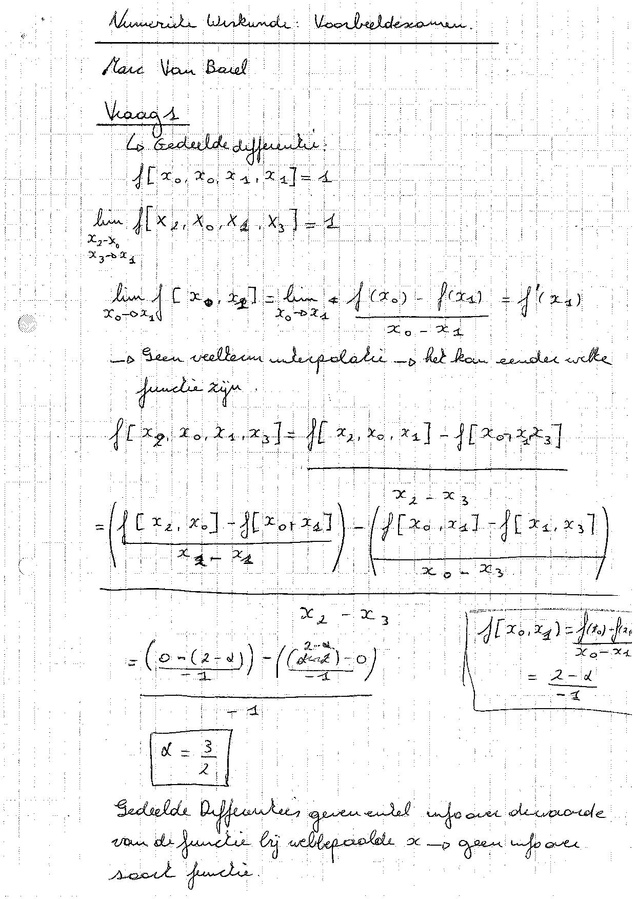 Numerieke Wiskunde: Voorbeeldexamen.
Marc Van Barel
Vraag 1
↳ Gedeelde differentie:
f[x₀, x₀, x₁, x₁] = 1
lim f[x₂, x₀, x₁, x₃] = 1
x₂→x₀
x₃→x₁
lim f[x₀, x₁] = lim f(x₀) - f(x₁) = f'(x₁)
x₀→x₁ x₀→x₁ x₀ - x₁
→ Geen veelterm interpolatie → het kan eender welke
functie zijn.
f[x₂, x₀, x₁, x₃] = f[x₂, x₀, x₁] - f[x₀, x₁, x₃]
x₂ - x₃
= (f[x₂, x₀] - f[x₀, x₁]) - (f[x₀, x₁] - f[x₁, x₃])
x₂ - x₁ x₀ - x₃
x₂ - x₃
f[x₀, x₁) = f(x₀) - f(x₁
x₀ - x₁
= 2 - α
-1
= (0 - (2 - α)) - ((2-α) - 0)
-1 -1
-1
α = 3
2
Gedeelde Differenties geven enkel info over de waarde
van de functie bij welbepaalde x → geen info over
soort functie.